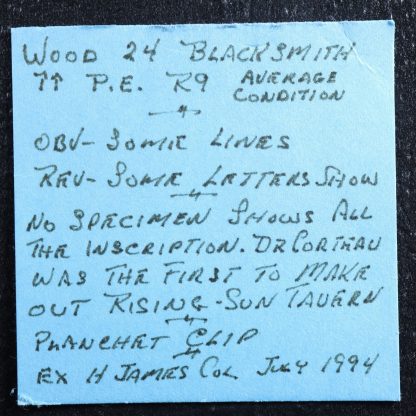 WOOD 24 BLACKSMITH
↑↑ P.E. R9 AVERAGE CONDITION
OBV- SOME LINES
REV- SOME LETTERS SHOW
NO SPECIMEN SHOWS ALL
THE INSCRIPTION. DR CORTEAU
WAS THE FIRST TO MAKE
OUT RISING-SUN TAVERN
PLANCHET CLIP
EX H JAMES COL JULY 1994